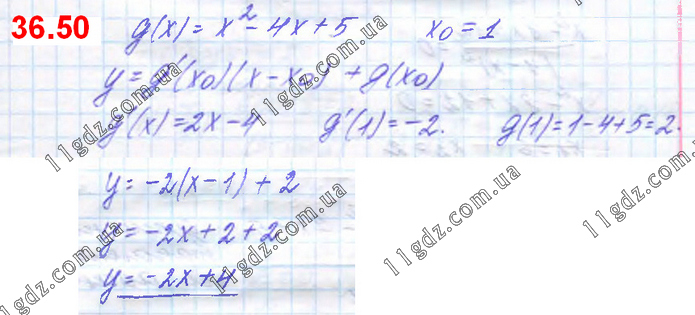 36.50 g(x) = x² - 4x + 5 x₀ = 1
y = g'(x₀)(x - x₀) + g(x₀)
g'(x) = 2x - 4 g'(1) = -2. g(1) = 1 - 4 + 5 = 2.
y = -2(x - 1) + 2
y = -2x + 2 + 2
y = -2x + 4
11gdz.com.ua
11gdz.com.ua
11gdz.com.ua
11gdz.com.ua
11gdz.com.ua
11gdz.com.ua